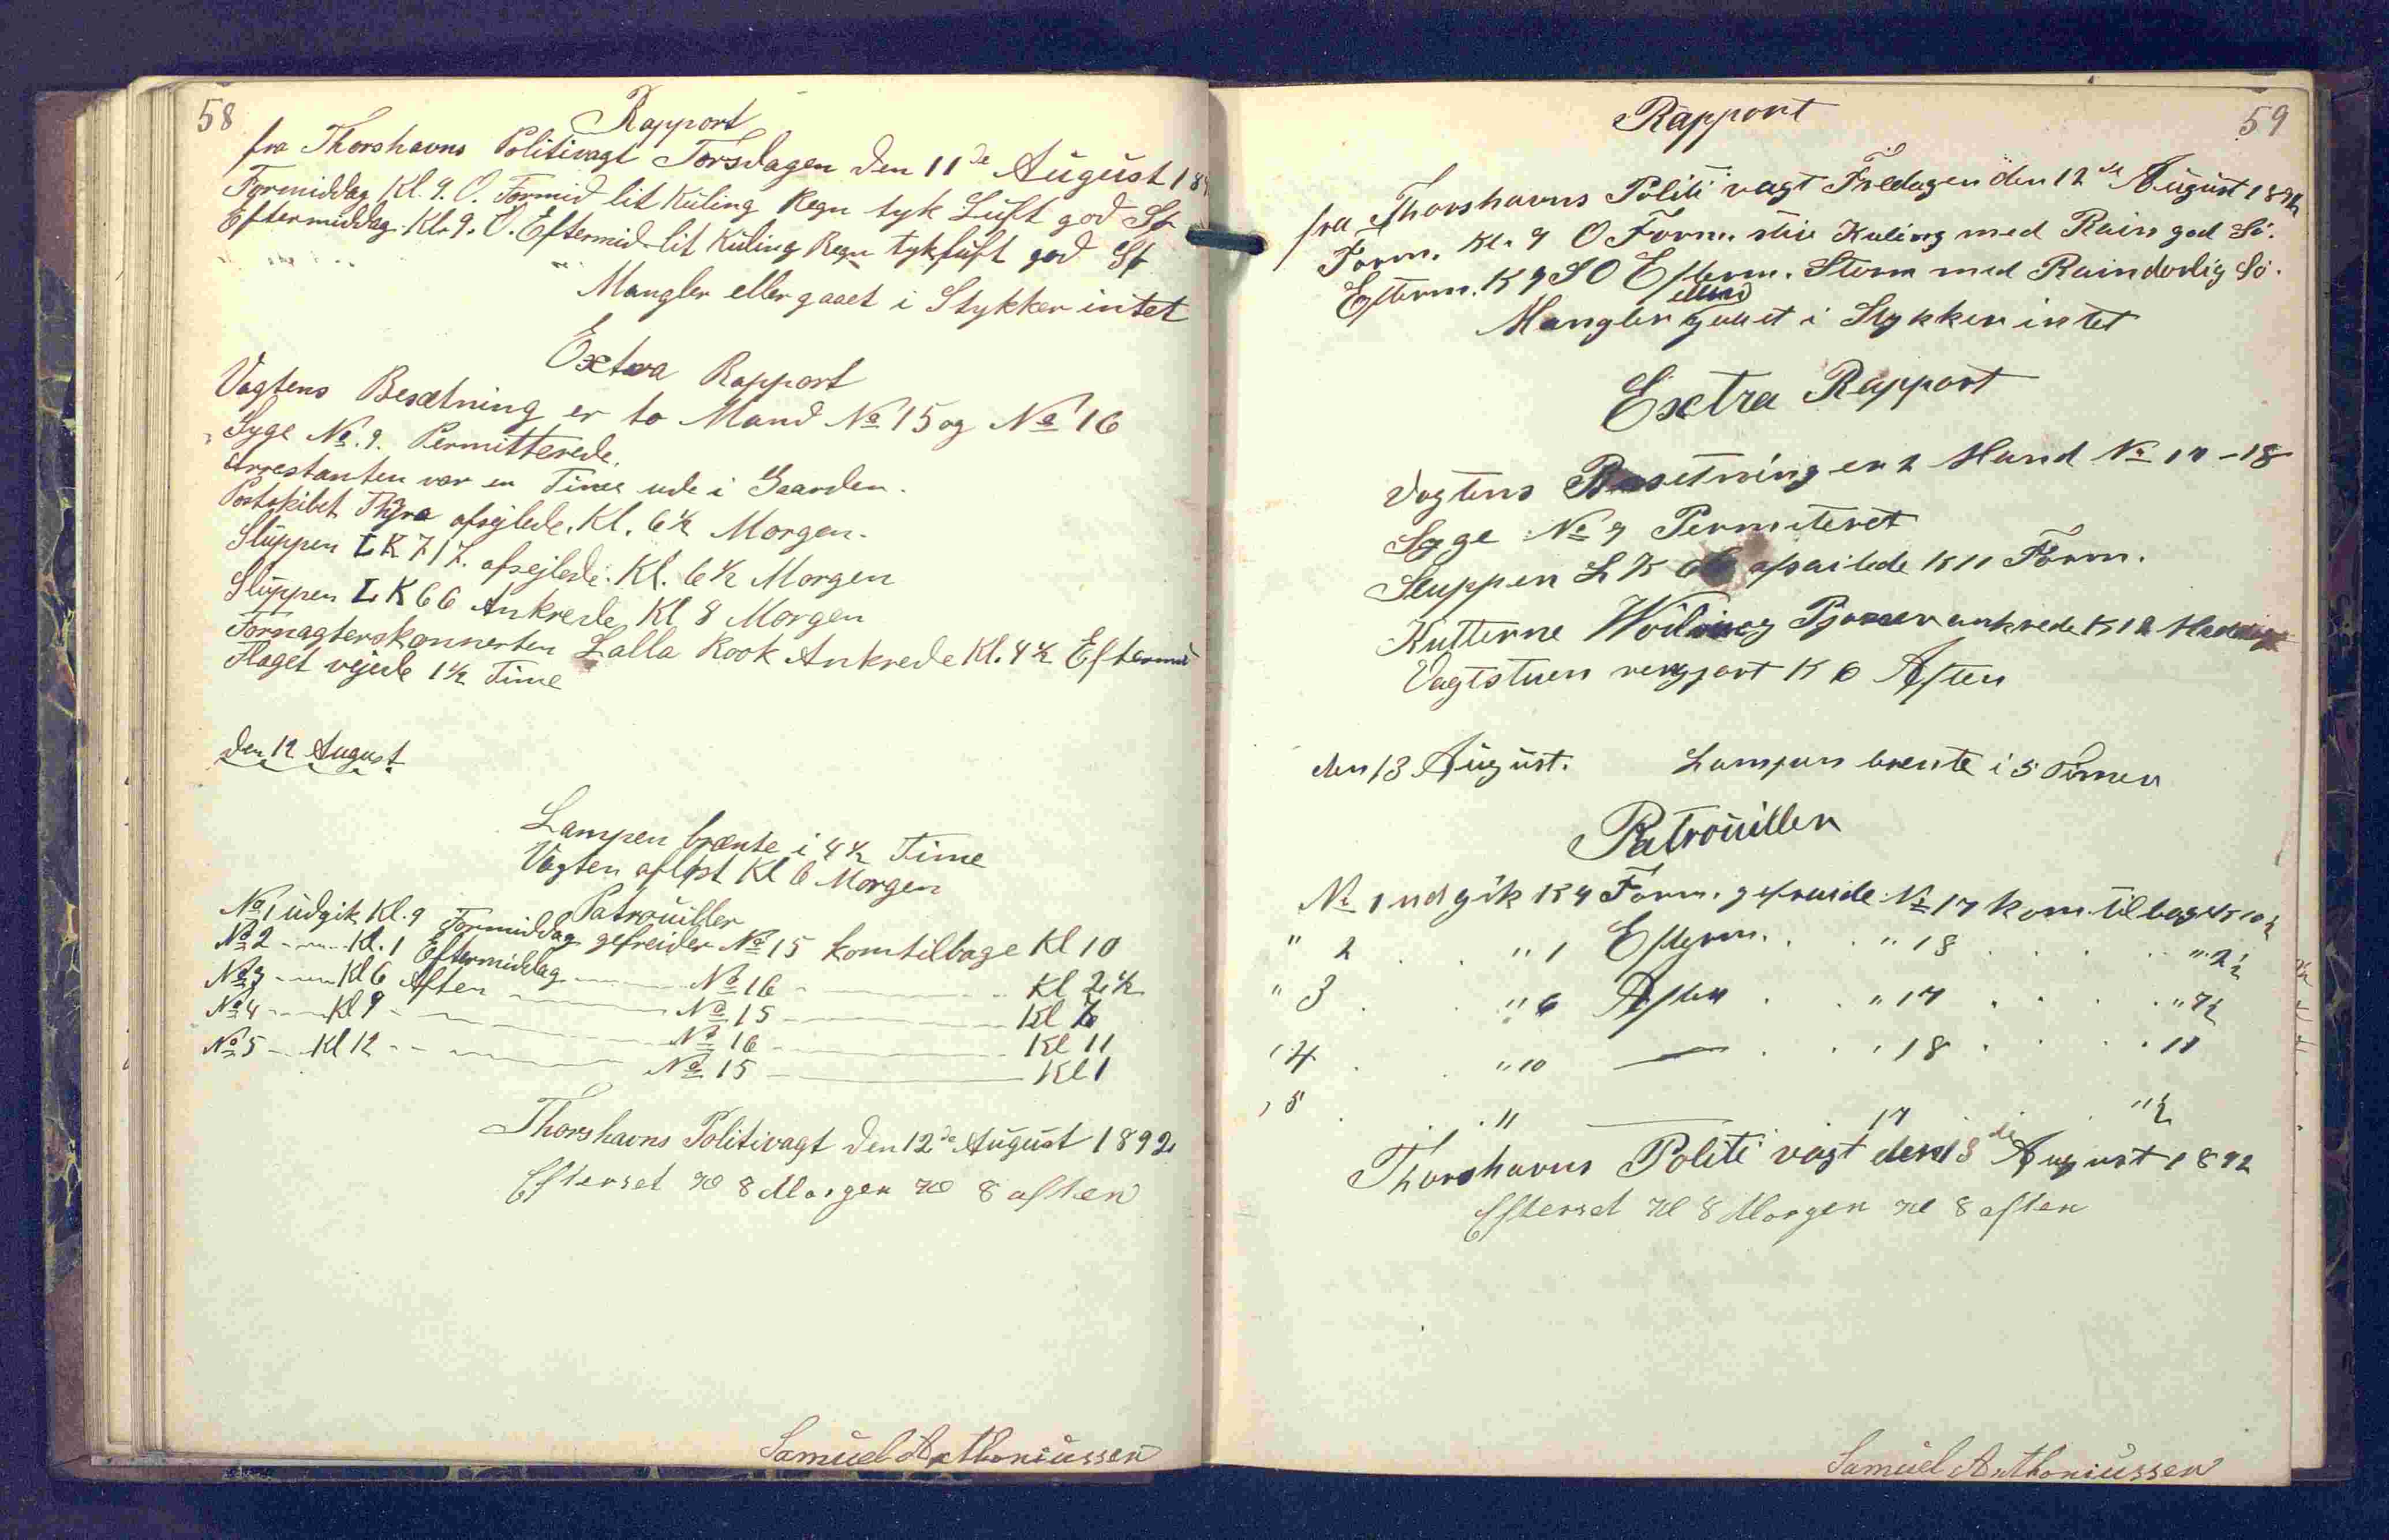 58
Rapport
fra Thorshavns Politivagt Torsdagen den 11de August 189
Formiddag Kl. 9. O. Formid lit Kuling Regn tyk Luft god Sø
Eftermiddag Kl. 9. O. Eftermid lit Kuling Regn tykluft god Sø
Mangler eller gaaet i Stykker intet
Extra Rapport
Vagtens Besætning er to Mand No 15 og No 16
Syge No. 9. Permitterede.
Arrestanten var en Time ude i Gaarden.
Postskibet Thyra afsejlede. Kl. 6½ Morgen.
Sluppen LK 717. afsejlede. Kl. 6½ Morgen
Sluppen LK 66 Ankrede Kl 8 Morgen
Skonnerten Lalla Rook Ankrede Kl. 4½ Eftermid
Flaget vejede 1½ Time
den 12 August
Lampen brænte i 4½ Time
Vagten afløst Kl 6 Morgen
Patrouiller
No 1 udgik Kl. 9 Formiddag gefreider No 15 kom tilbage Kl 10
No 2 - - Kl. 1 Eftermiddag - No 16 - Kl 2½
No 3 - - Kl 6 Aften - No 15 - Kl 7
No 4 - - Kl 9 - No 16 - Kl 11
No 5 - Kl 12 - - No 15 - Kl 1
Thorshavns Politivagt den 12de August 1892
Efterset Kl 8 Morgen Kl 8 aften
Samuel Anthoniussen
59
Rapport
fra Thorshavns Politi vagt Fredagen den 12de August 1892
Form. Kl. 9 O Form. stiv Kuling med Rain god Sö.
Efterm. K 9 SO Efterm. Storm med Rain dorlig Sö.
Mangler eller gaaet i Stykker intet
Exctra Rapport
Vagtens Besetning er 2 Mand No 17 - 18
Syge No 9 Permiteret
Sluppen L K 66 afsailede K 11 Form.
Kutterne og ankrede K 12
Vagtstuen rengjort K 6 Aften
den 13 August. Lampen brente i 5 Timer
Patrouiller
No 1 udgik K 9 Form. gefraide No 17 kom tilbage K 10½
" 2 . . " 1 Efterm. . . " 18 . . . . " 2½
" 3 . . " 6 Aften . . " 17 . . . . " 7½
" 4 . . " 10 — . . " 18 . . . . 11
" 5 . . . 11 — 17 . . " ½
Thorshavns Politi vagt den 13de August 1892
Efterset Kl 8 Morgen Kl 8 aften
Samuel Anthoniussen